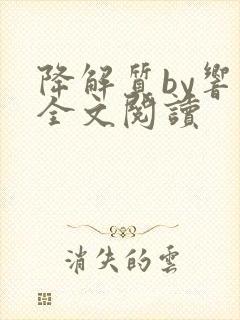 降解質by響
全文閱讀
消失的雲